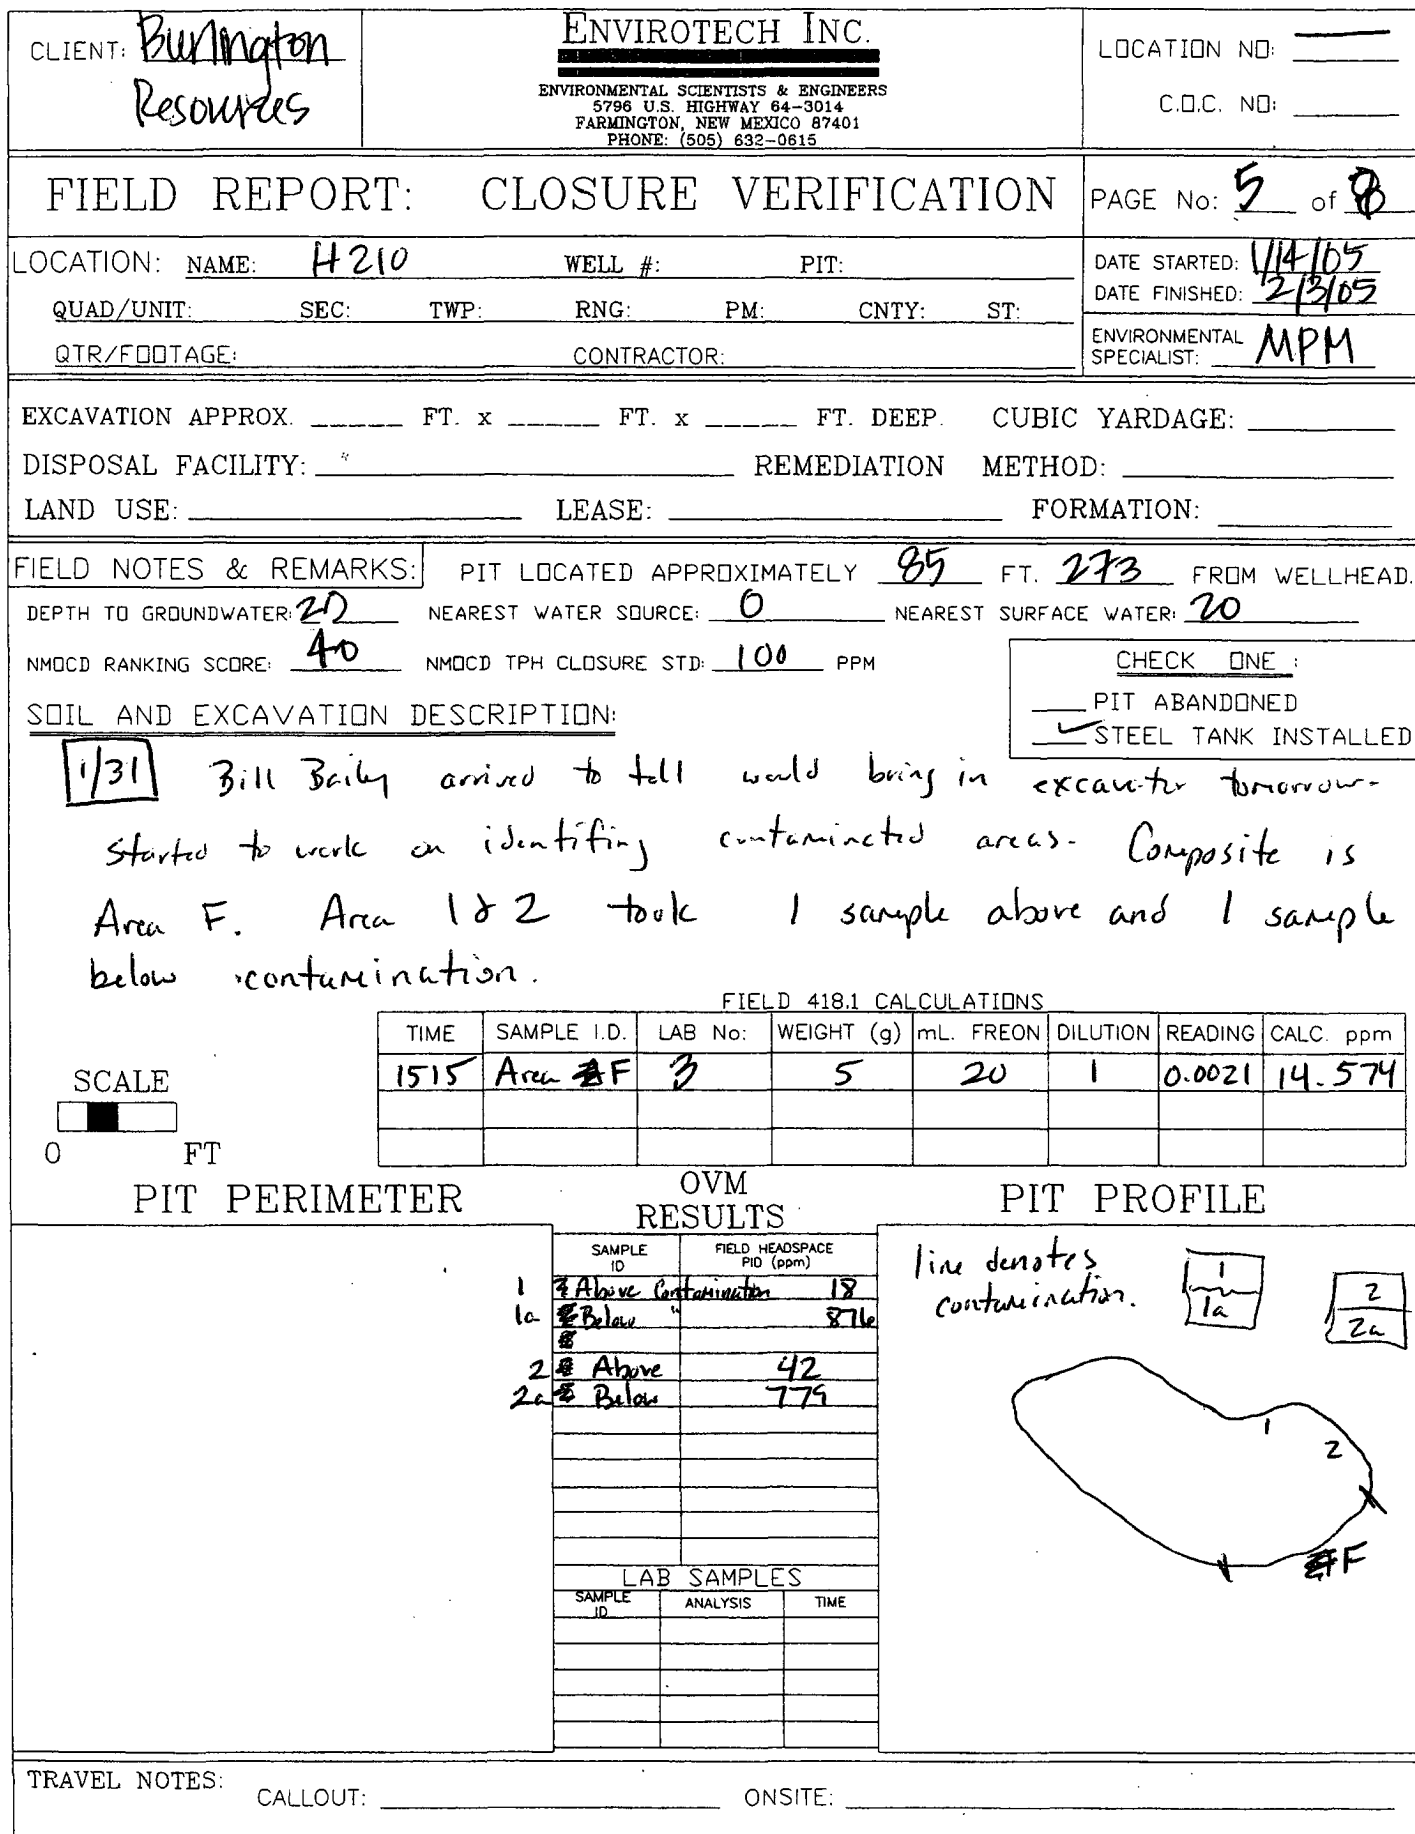 CLIENT: Burlington Resources
ENVIROTECH INC.
ENVIRONMENTAL SCIENTISTS & ENGINEERS
5796 U.S. HIGHWAY 64-3014
FARMINGTON, NEW MEXICO 87401
PHONE: (505) 632-0615
LOCATION NO:
C.O.C. NO:
FIELD REPORT: CLOSURE VERIFICATION
PAGE No: 5 of 8
LOCATION: NAME: H210 WELL #: PIT:
QUAD/UNIT: SEC: TWP: RNG: PM: CNTY: ST:
QTR/FOOTAGE: CONTRACTOR:
DATE STARTED: 1/14/05
DATE FINISHED: 2/3/05
ENVIRONMENTAL SPECIALIST: MPM
EXCAVATION APPROX. FT. x FT. x FT. DEEP. CUBIC YARDAGE:
DISPOSAL FACILITY: REMEDIATION METHOD:
LAND USE: LEASE: FORMATION:
FIELD NOTES & REMARKS: PIT LOCATED APPROXIMATELY 85 FT. 273 FROM WELLHEAD.
DEPTH TO GROUNDWATER: 20 NEAREST WATER SOURCE: 0 NEAREST SURFACE WATER: 20
NMOCD RANKING SCORE: 40 NMOCD TPH CLOSURE STD: 100 PPM
CHECK ONE :
PIT ABANDONED
✓ STEEL TANK INSTALLED
SOIL AND EXCAVATION DESCRIPTION:
1/31 Bill Baily arrived to tell would bring in excavator tomorrow-
started to work on identifing contaminated areas- Composite is
Area F. Area 1 & 2 took 1 sample above and 1 sample
below contamination.
FIELD 418.1 CALCULATIONS
TIME SAMPLE I.D. LAB No: WEIGHT (g) mL. FREON DILUTION READING CALC. ppm
1515 Area F 3 5 20 1 0.0021 14.574
SCALE
0 FT
PIT PERIMETER
OVM RESULTS
SAMPLE ID FIELD HEADSPACE PID (ppm)
1 Above Contamination 18
1a Below " 876
2 Above 42
2a Below 779
LAB SAMPLES
SAMPLE ID ANALYSIS TIME
PIT PROFILE
line denotes
contamination.
1
1a
2
2a
1
2
F
TRAVEL NOTES: CALLOUT: ONSITE: